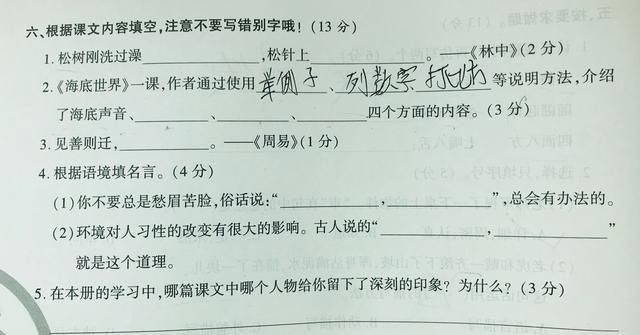 六、根据课文内容填空,注意不要写错别字哦!(13 分)
1. 松树刚洗过澡____,松针上____。——《林中》(2 分)
2.《海底世界》一课,作者通过使用举例子、列数字 打比方等说明方法,介绍
了海底声音、____、____、____四个方面的内容。(3 分)
3. 见善则迁,____。——《周易》(1 分)
4. 根据语境填名言。(4 分)
(1)你不要总是愁眉苦脸,俗话说:“____”,总会有办法的。
(2)环境对人习性的改变有很大的影响。古人说的“____,____”
就是这个道理。
5. 在本册的学习中,哪篇课文中哪个人物给你留下了深刻的印象?为什么?(3 分)